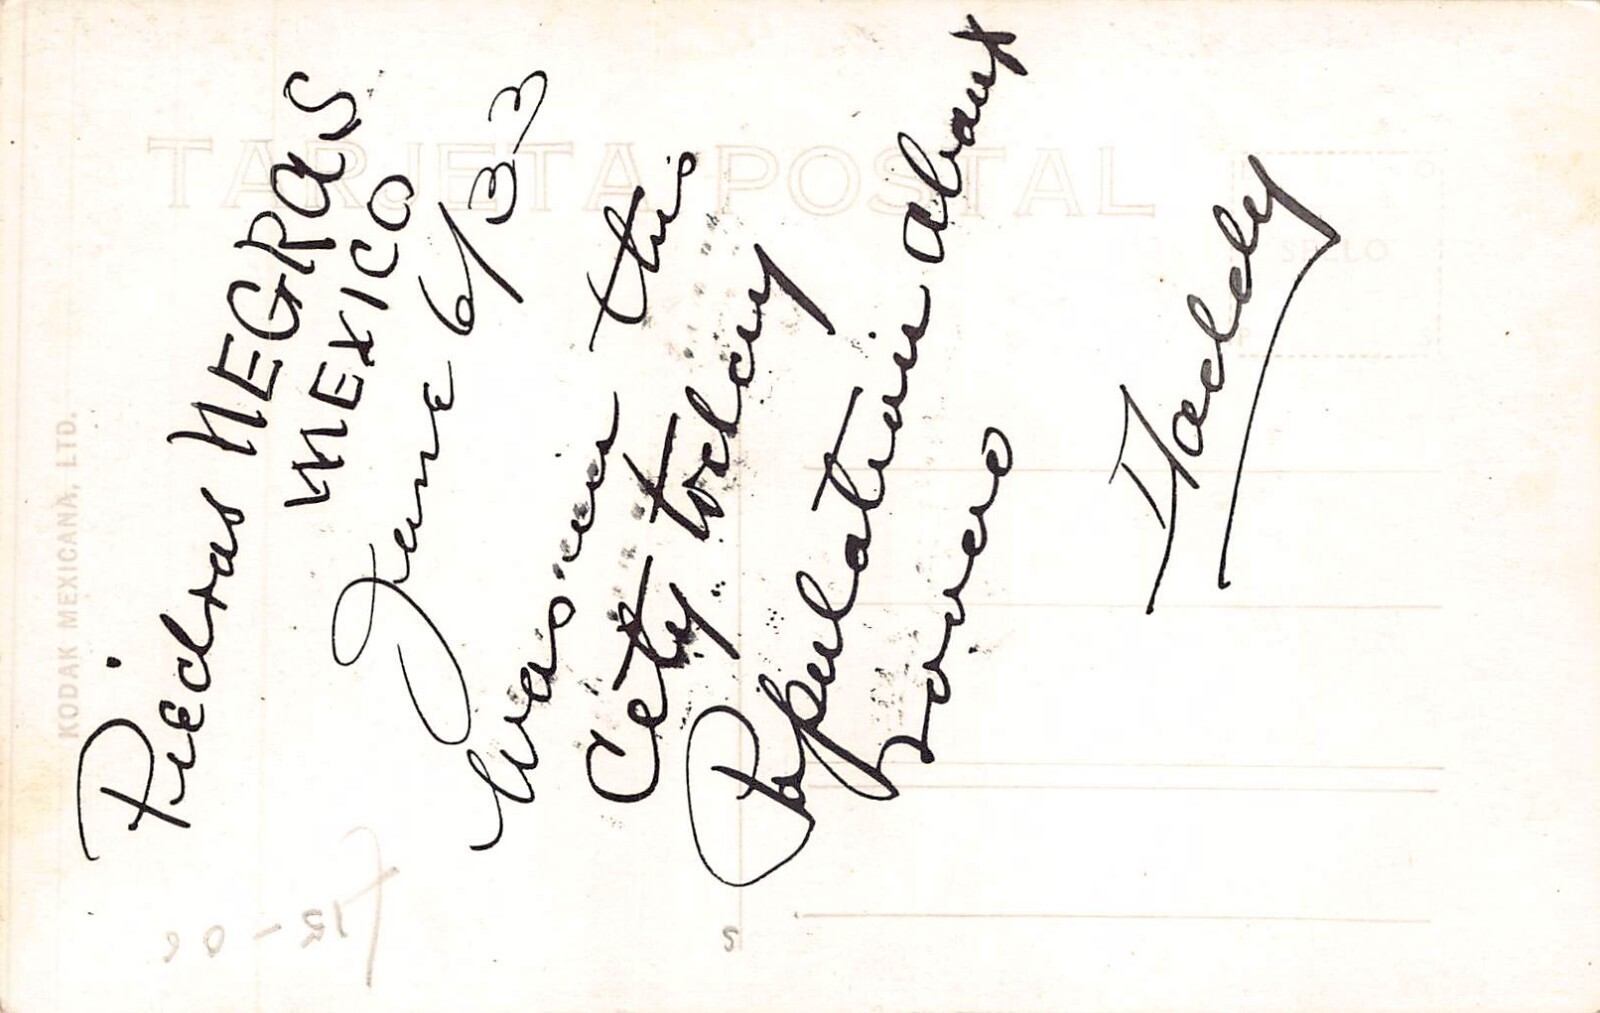 Piedras NEGRAS
MEXICO
June 6/33
Was in this
City today
Population about
Daddy
TARJETA POSTAL
SELLO
KODAK MEXICANA, LTD.
S